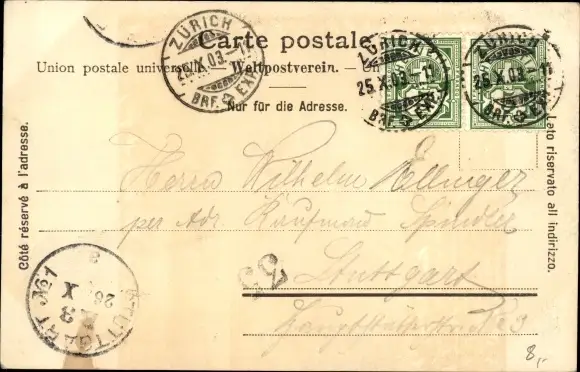 Carte postale
Union postale universelle. Weltpostverein.
Nur für die Adresse.
Côté réservé à l'adresse.
Lato riservato all indirizzo.
ZÜRICH
25.X.03.–11
BRF. EXP.
ZÜRICH
25.X.03.–11
BRF. EXP.
ZÜRICH
25.X.03.–11
BRF. EXP.
Herrn Wilhelm Ellinger
per Adr Kaufmann Spindler
Stuttgart
33
STUTTGART No 1
26 X
8,-